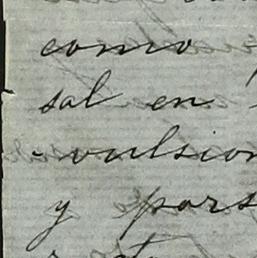 como
sal en
-vulsion
y pors